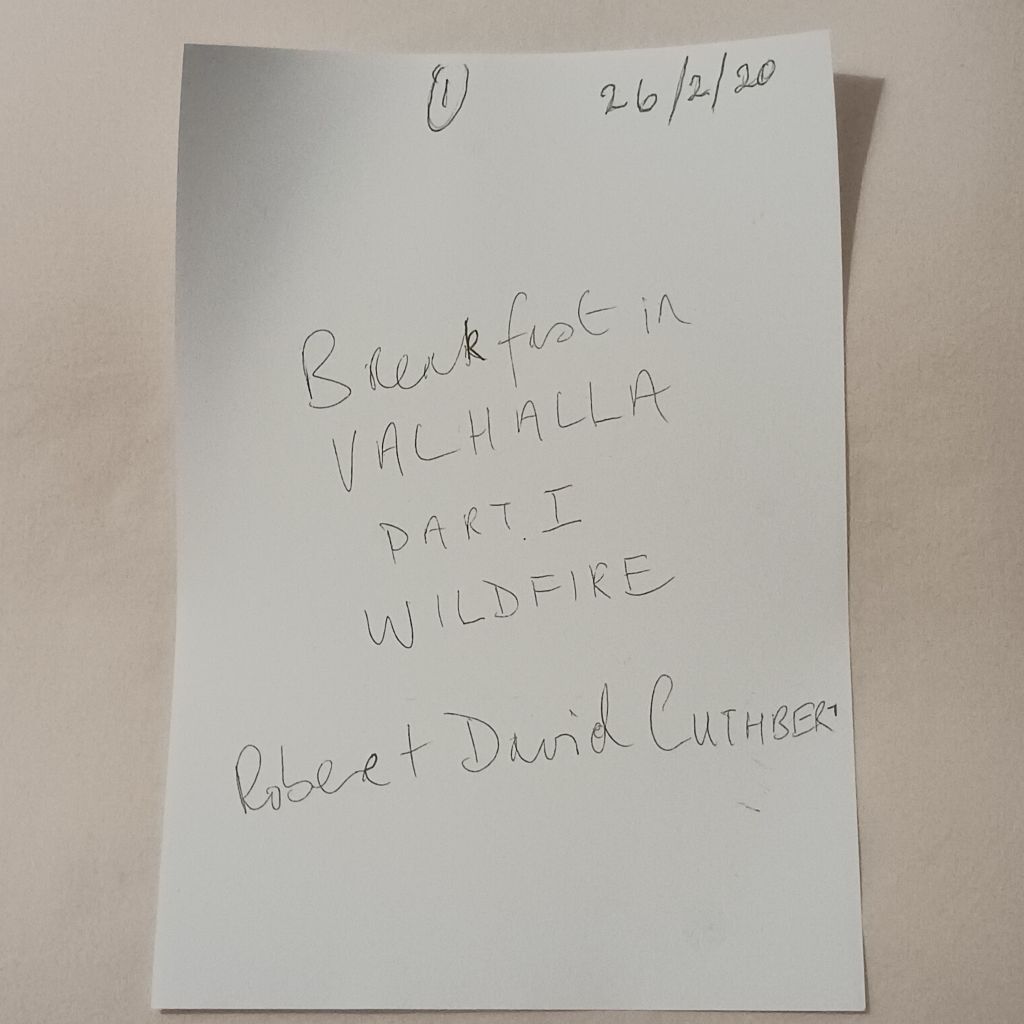 1 26/2/20
Breakfast in
VALHALLA
PART. I
WILDFIRE
Robert David CUTHBERT